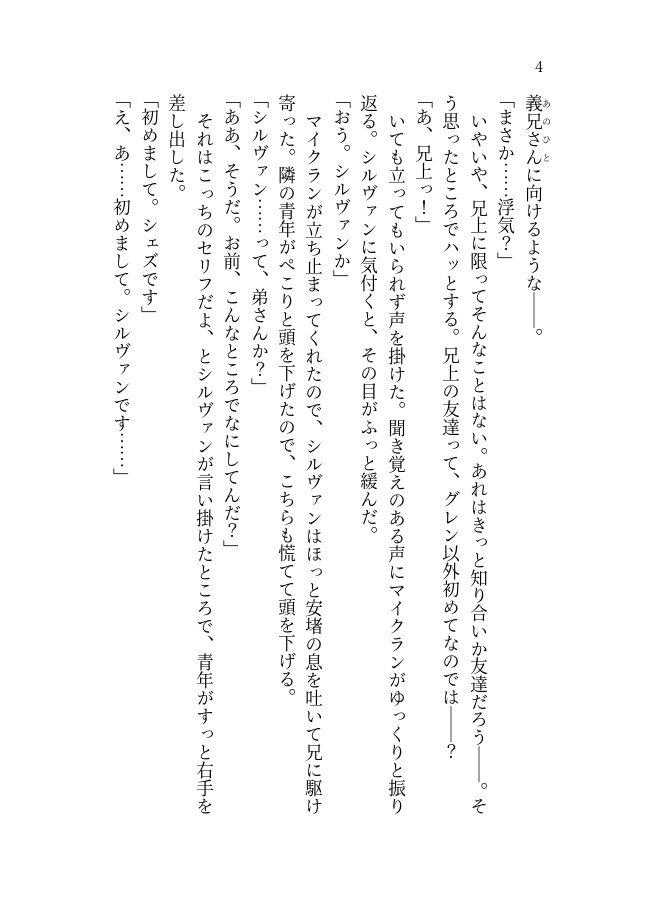 4
義兄さんに向けるような――。
あのひと
「まさか……浮気？」
いやいや、兄上に限ってそんなことはない。あれはきっと知り合いか友達だろう――。そ
う思ったところでハッとする。兄上の友達って、グレン以外初めてなのでは――？
「あ、兄上っ！」
いても立ってもいられず声を掛けた。聞き覚えのある声にマイクランがゆっくりと振り
返る。シルヴァンに気付くと、その目がふっと緩んだ。
「おう。シルヴァンか」
マイクランが立ち止まってくれたので、シルヴァンはほっと安堵の息を吐いて兄に駆け
寄った。隣の青年がぺこりと頭を下げたので、こちらも慌てて頭を下げる。
「シルヴァン……って、弟さんか？」
「ああ、そうだ。お前、こんなところでなにしてんだ？」
それはこっちのセリフだよ、とシルヴァンが言い掛けたところで、青年がすっと右手を
差し出した。
「初めまして。シェズです」
「え、あ……初めまして。シルヴァンです……」